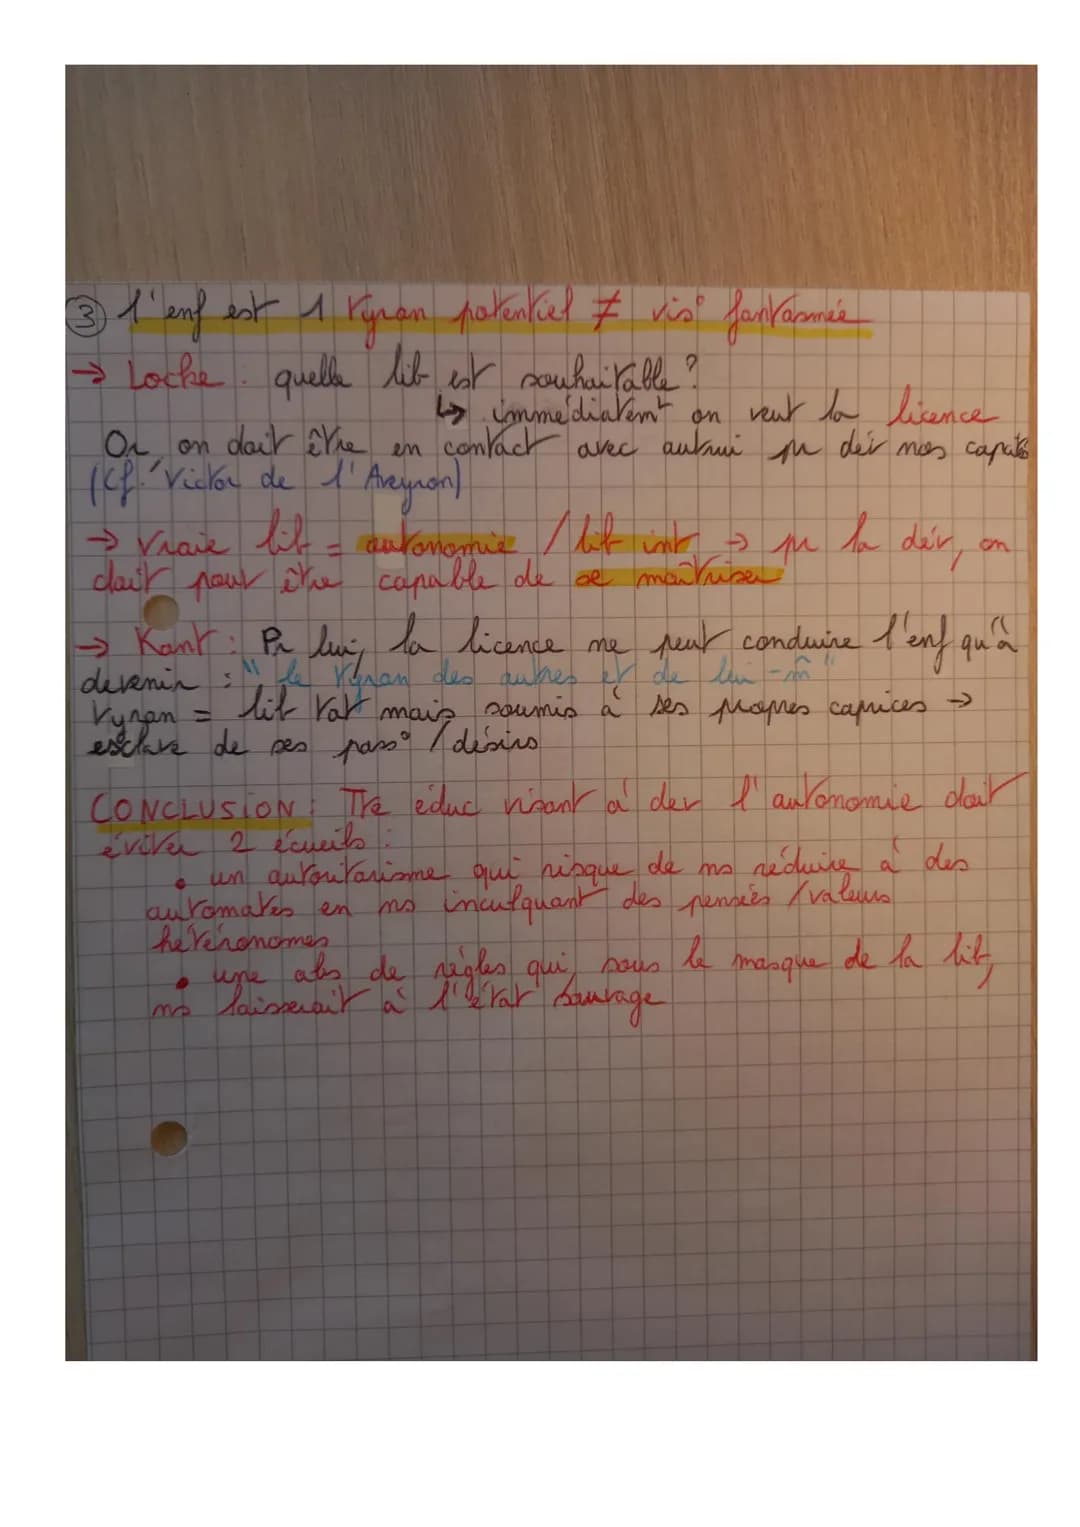 ③ l'enf est 1 tyran potentiel ≠ vis° fantasmée
→ Locke : quelle lib est souhaitable ?
↳ immédiatemt on veut la licence
Or, on doit être en contact avec autrui pr dév nos capités
(Cf. Victor de l'Aveyron)
→ Vraie lib = autonomie / lib int → pr la dév, on
doit pour être capable de se maîtriser
→ Kant : Pr lui, la licence ne peut conduire l'enf qu'à
devenir : "le tyran des autres et de lui-m̂"
tyran = lib tot mais soumis à ses propres caprices →
esclave de ses pass° / désirs
CONCLUSION : Tte éduc visant à dev l'autonomie doit
éviter 2 écueils :
• un autoritarisme qui risque de ns réduire à des
automates en ns inculquant des pensées / valeurs
hétéronomes
• une abs de règles qui, sous le masque de la lib,
ns laisserait à l'état sauvage